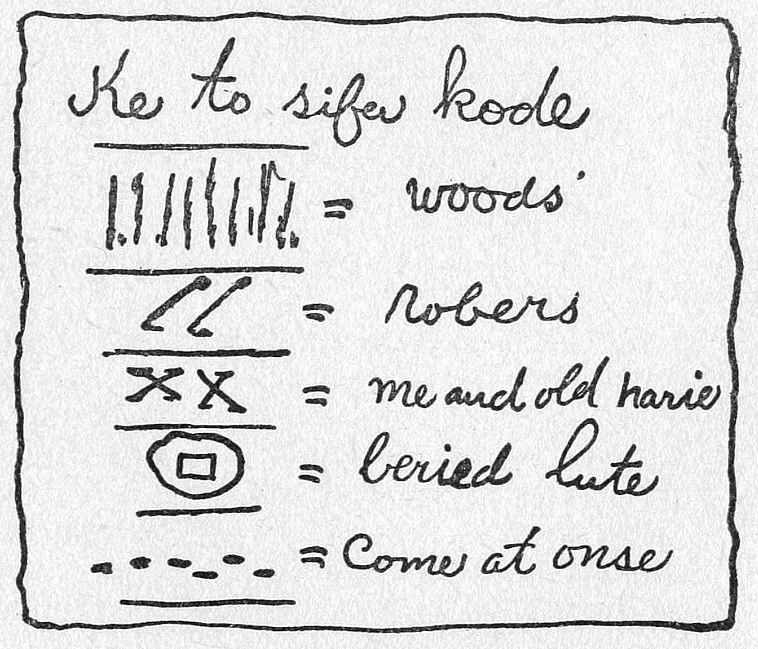 Ke to sifer kode
= woods
= robers
XX = me and old harie
= beried lute
= Come at onse